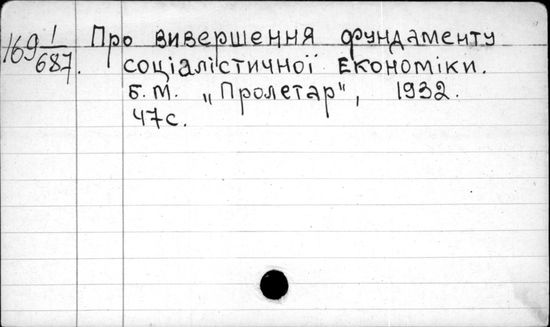 169 1/687. Про вивершення фундаменту
соціалістичної економіки.
Б.м. „Пролетар", 1932.
47с.